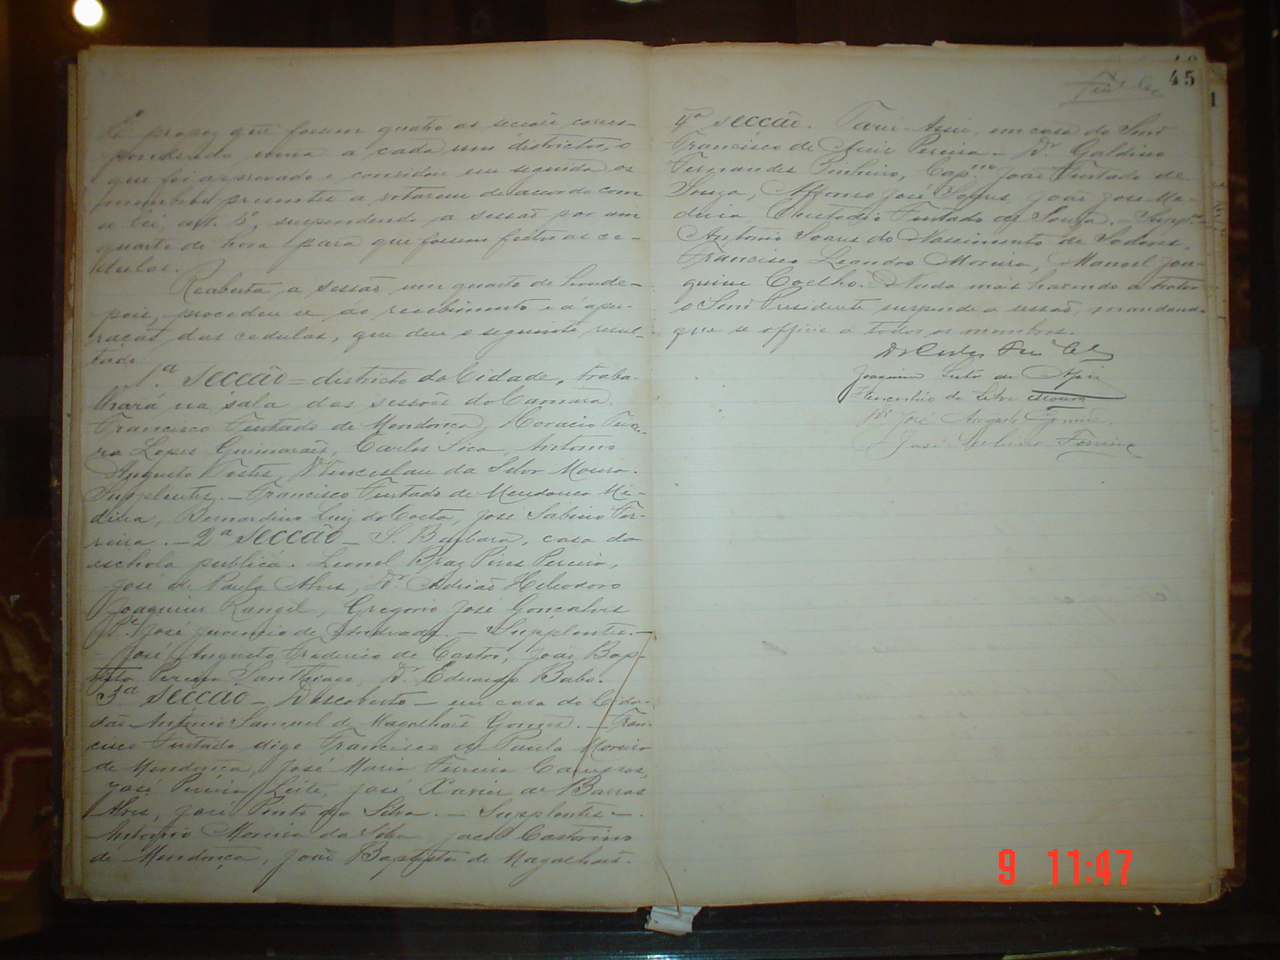 E propoz que fossem quatro as secções corres-
pondendo uma a cada um districtos, o
que foi approvado e convidou em seguida os
membros presentes a votarem de acordo com
a lei, art. 6º, suspendendo a sessão por um
quarto de hora para que fossem feitas as ce-
dulas.
Reaberta a sessão um quarto de hora de-
pois, procedeu se ao recebimento e á apu-
ração das cedulas, que deu o seguinte resul-
tado
1ª secção = districto da Cidade, traba-
lhará na sala das sessões da Camara.
Francisco Furtado de Mendonça, Horacio
Lopes Guimarães, Carlos Sica, Antonio
Augusto Wenceslau da Silva Moura.
Supplentes. - Francisco Furtado de Mendonca Me-
dina, Bernardino Luiz da Costa, José Sabino Fer-
reira. - 2ª secção - S. Barbara, casa da
eschola publica. Leonel Braz Pires Pereira,
José de Paula Alves, Dr Adrião Heliodoro
Joaquim Rangel, Gregorio José Gonçalves
Pe. José de Andrade. - Supplentes. -
José Augusto Frederico de Castro, João Bap-
tista Pereira San Thiago, Dr Eduardo
3ª secção - Descoberto - em casa do Cida-
dão Antonio Samuel de Magalhães Gomes. - Fran-
cisco Furtado digo Francisco de Paula Moreira
de Mendonça, José Maria Ferreira
José Pereira Leite, José Xavier de Barros
Alves, José Pinto da Silva. - Supplentes -
Antonio Moreira da Silva, Jacob Castorino
de Mendonça, João Baptista de Magalhães.
45
4ª secção. em casa do Snr
Francisco de Pereira - Dr. Galdino
Fernandes Pinheiro, Capm João Furtado de
Souza, Affonso José Soares, João José Me-
deira, Custodio Furtado de Souza. - Supples
Antonio Soares do Nascimento de
Francisco Leandro Moreira, Manoel Joa-
quim Coelho. Nada mais havendo a tratar
o Snr Presidente suspende a sessão, mandando
que se officie a todos os membros.
Dr Carlos
Joaquim
Wenceslau da Silva Moura
Dr. José Augusto
José Sabino Ferreira
9 11:47